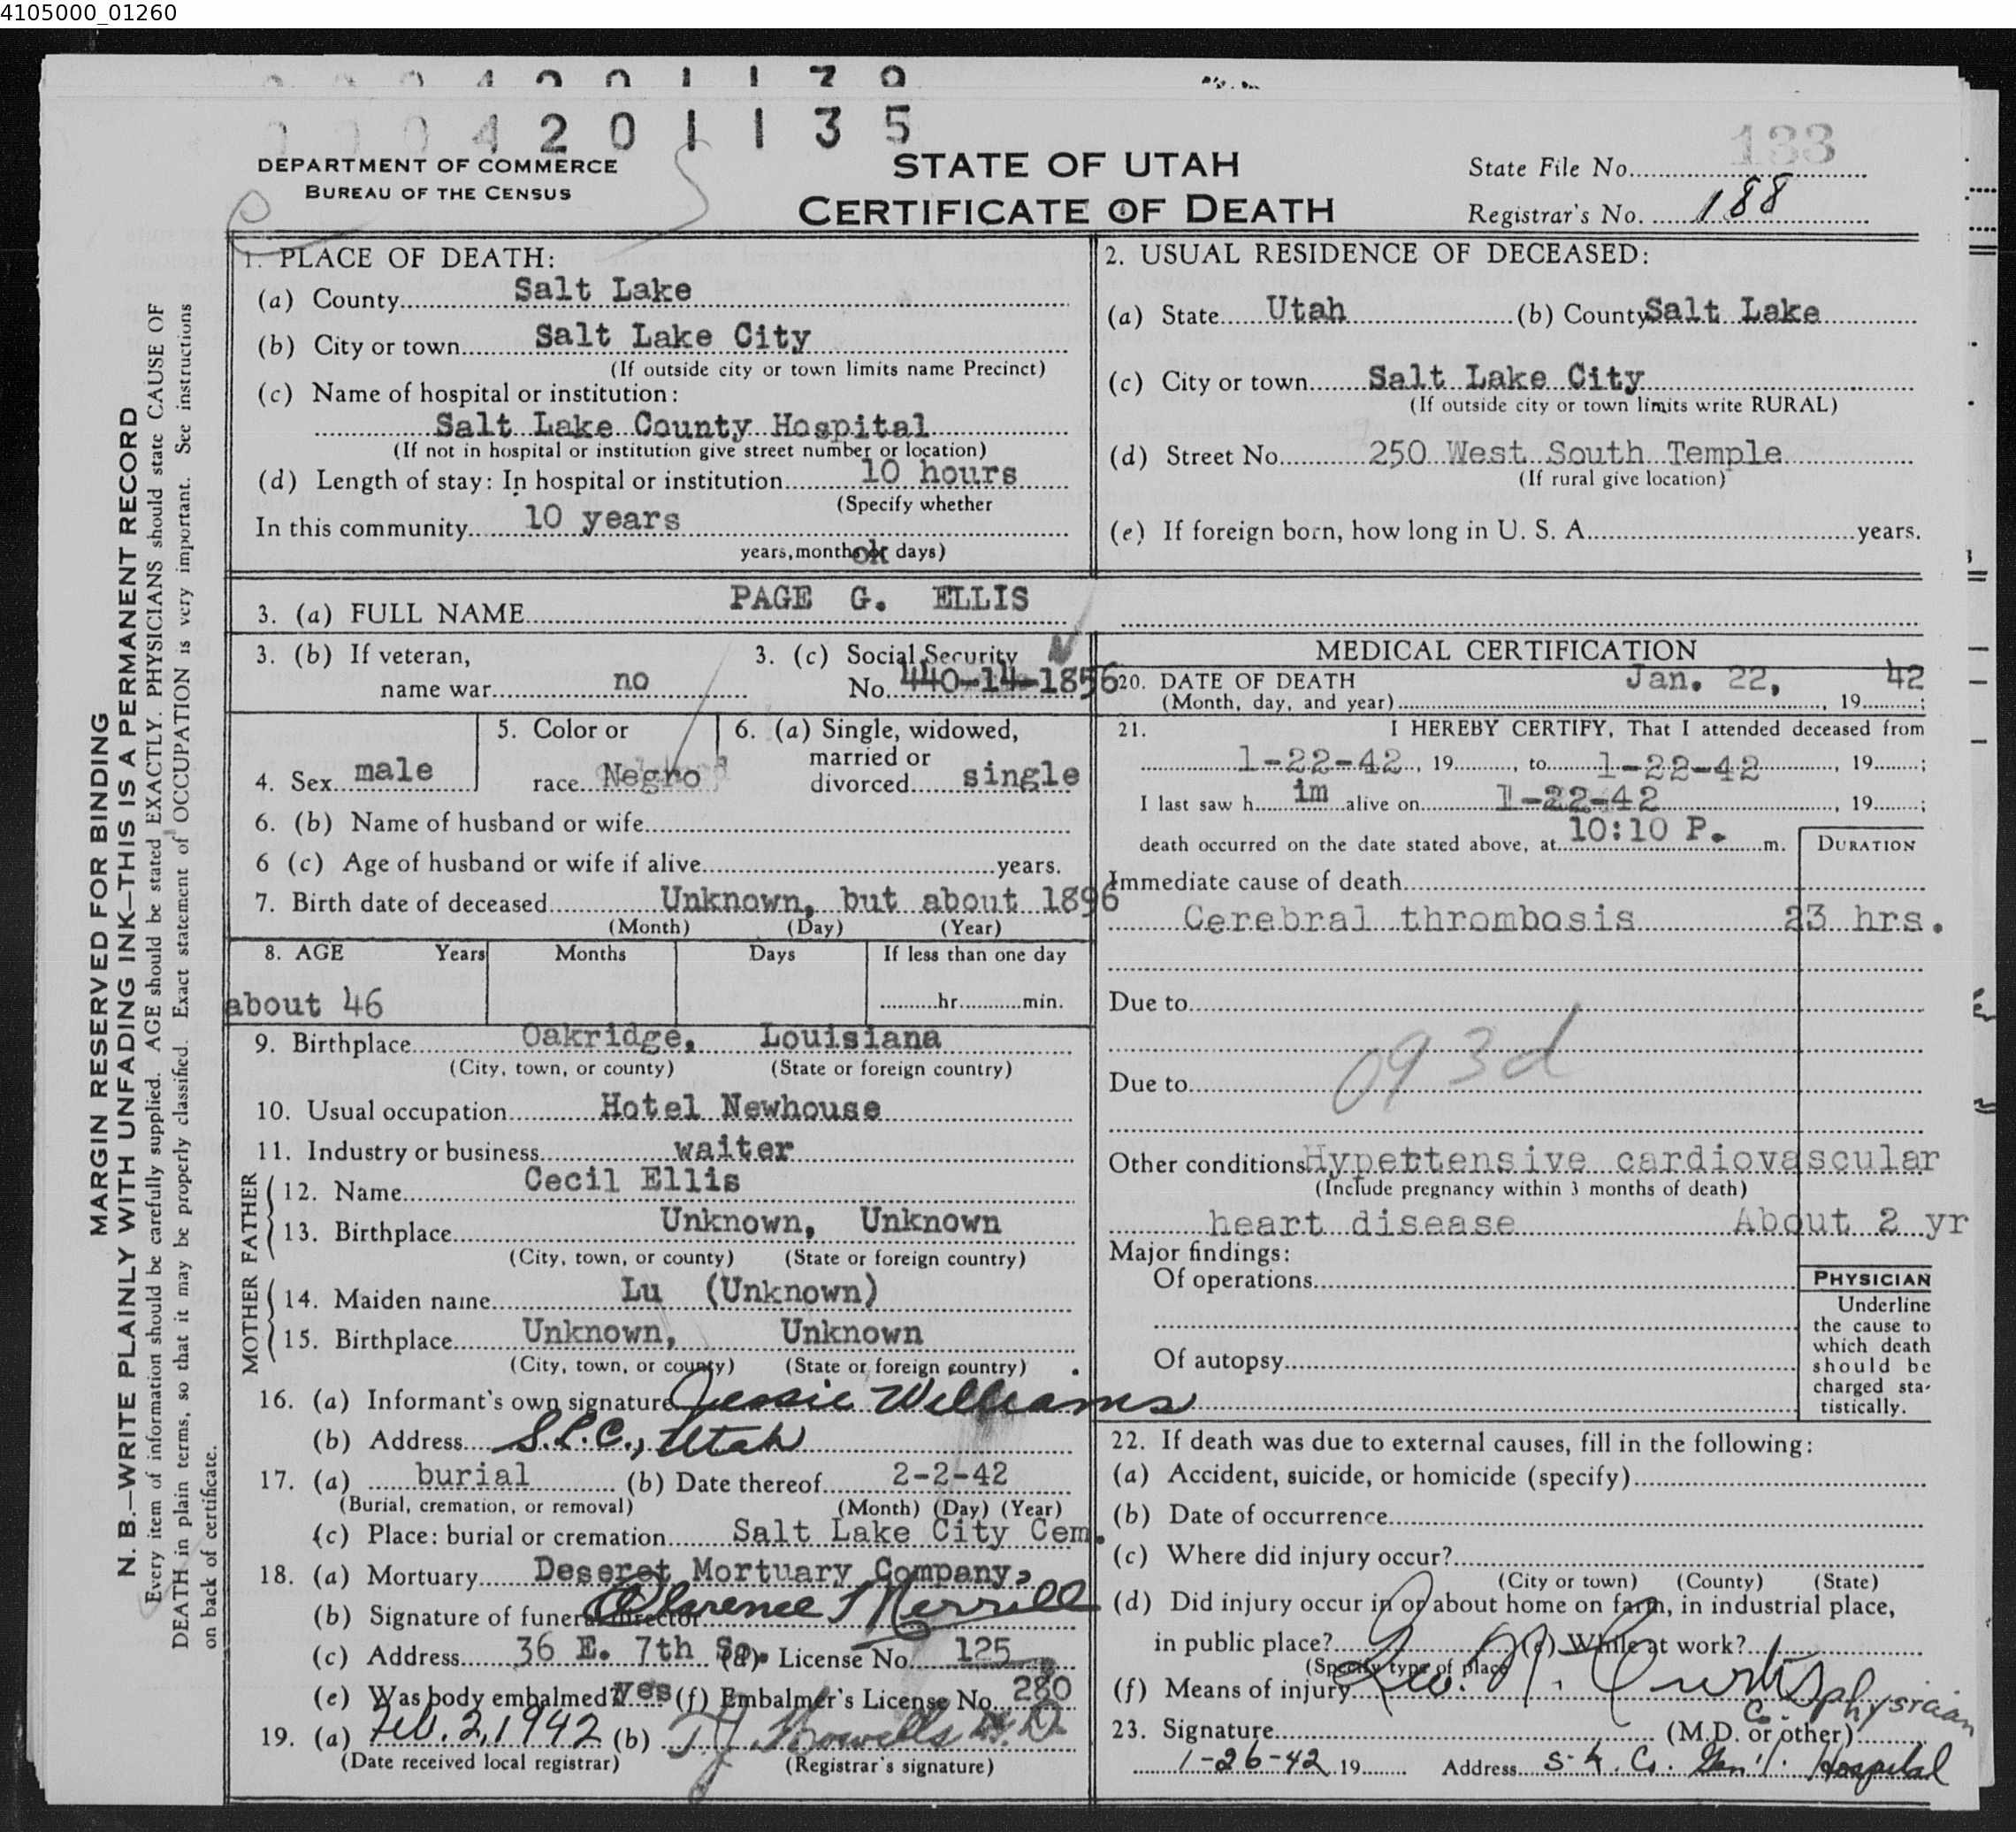 4105000_01260
0004201135
DEPARTMENT OF COMMERCE
BUREAU OF THE CENSUS
STATE OF UTAH
CERTIFICATE OF DEATH
State File No. 133
Registrar's No. 188
MARGIN RESERVED FOR BINDING
N. B.—WRITE PLAINLY WITH UNFADING INK—THIS IS A PERMANENT RECORD
Every item of information should be carefully supplied. AGE should be stated EXACTLY. PHYSICIANS should state CAUSE OF
DEATH in plain terms, so that it may be properly classified. Exact statement of OCCUPATION is very important. See instructions
on back of certificate.
1. PLACE OF DEATH:
(a) County Salt Lake
(b) City or town Salt Lake City
(If outside city or town limits name Precinct)
(c) Name of hospital or institution:
Salt Lake County Hospital
(If not in hospital or institution give street number or location)
(d) Length of stay: In hospital or institution 10 hours
(Specify whether
In this community 10 years
years, months or days)
2. USUAL RESIDENCE OF DECEASED:
(a) State Utah (b) County Salt Lake
(c) City or town Salt Lake City
(If outside city or town limits write RURAL)
(d) Street No. 250 West South Temple
(If rural give location)
(e) If foreign born, how long in U. S. A. years.
3. (a) FULL NAME PAGE G. ELLIS
3. (b) If veteran, 3. (c) Social Security
name war no No. 440-14-1856
4. Sex male
5. Color or
race Negro
6. (a) Single, widowed,
married or
divorced single
6. (b) Name of husband or wife
6 (c) Age of husband or wife if alive years.
7. Birth date of deceased Unknown, but about 1896
(Month) (Day) (Year)
8. AGE Years Months Days If less than one day
about 46 hr. min.
9. Birthplace Oakridge, Louisiana
(City, town, or county) (State or foreign country)
10. Usual occupation Hotel Newhouse
11. Industry or business waiter
FATHER
12. Name Cecil Ellis
13. Birthplace Unknown, Unknown
(City, town, or county) (State or foreign country)
MOTHER
14. Maiden name Lu (Unknown)
15. Birthplace Unknown, Unknown
(City, town, or county) (State or foreign country)
16. (a) Informant's own signature Jessie Williams
(b) Address S.L.C., Utah
17. (a) burial (b) Date thereof 2-2-42
(Burial, cremation, or removal) (Month) (Day) (Year)
(c) Place: burial or cremation Salt Lake City Cem.
18. (a) Mortuary Deseret Mortuary Company,
(b) Signature of funeral director Clarence T Merrill
(c) Address 36 E. 7th So. (d) License No. 125
(e) Was body embalmed? yes (f) Embalmer's License No. 280
19. (a) Feb. 2, 1942 (b) M.D.
(Date received local registrar) (Registrar's signature)
MEDICAL CERTIFICATION
20. DATE OF DEATH Jan. 22, 42
(Month, day, and year) , 19 ;
21. I HEREBY CERTIFY, That I attended deceased from
1-22-42, 19 , to 1-22-42, 19 ;
I last saw h im alive on 1-22-42, 19 ;
death occurred on the date stated above, at 10:10 P. m.
DURATION
Immediate cause of death
Cerebral thrombosis 23 hrs.
Due to
093d
Due to
Other conditions Hypertensive cardiovascular
(Include pregnancy within 3 months of death)
heart disease About 2 yr
Major findings:
Of operations
Of autopsy
PHYSICIAN
Underline
the cause to
which death
should be
charged sta-
tistically.
22. If death was due to external causes, fill in the following:
(a) Accident, suicide, or homicide (specify)
(b) Date of occurrence
(c) Where did injury occur?
(City or town) (County) (State)
(d) Did injury occur in or about home on farm, in industrial place,
in public place? (e) While at work?
(Specify type of place
(f) Means of injury
23. Signature Geo. N. Curtis Co. physician
(M.D. or other)
1-26-42 19 Address S. L. Co. Gen'l. Hospital